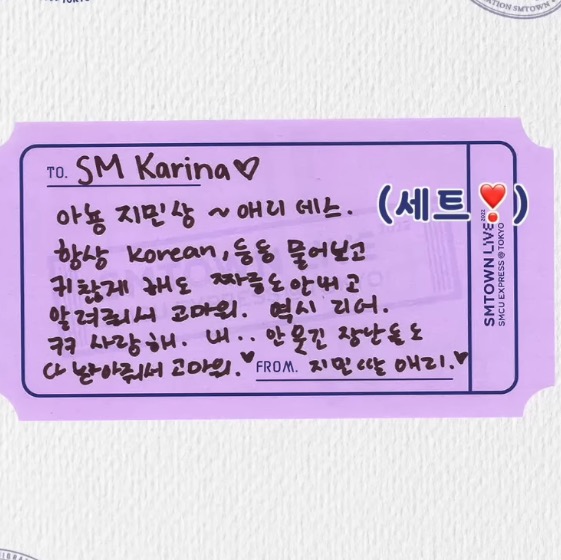 TO. SM Karina♡
아뇽 지민상 ~ 애리 데스.
(세트❣️)
항상 Korean, 등등 물어보고
귀찮게 해도 짜증도 안내고
알려줘서 고마워. 역시 리더.
ㅋㅋ 사랑해. 내.. 안웃긴 장난들도
다 받아줘서 고마워.♥
FROM. 지민 애리.♥
SMTOWN LIVE 2022
SMCU EXPRESS @TOKYO
SMTOWN LIVE
TOKYO
ATION SMTOWN